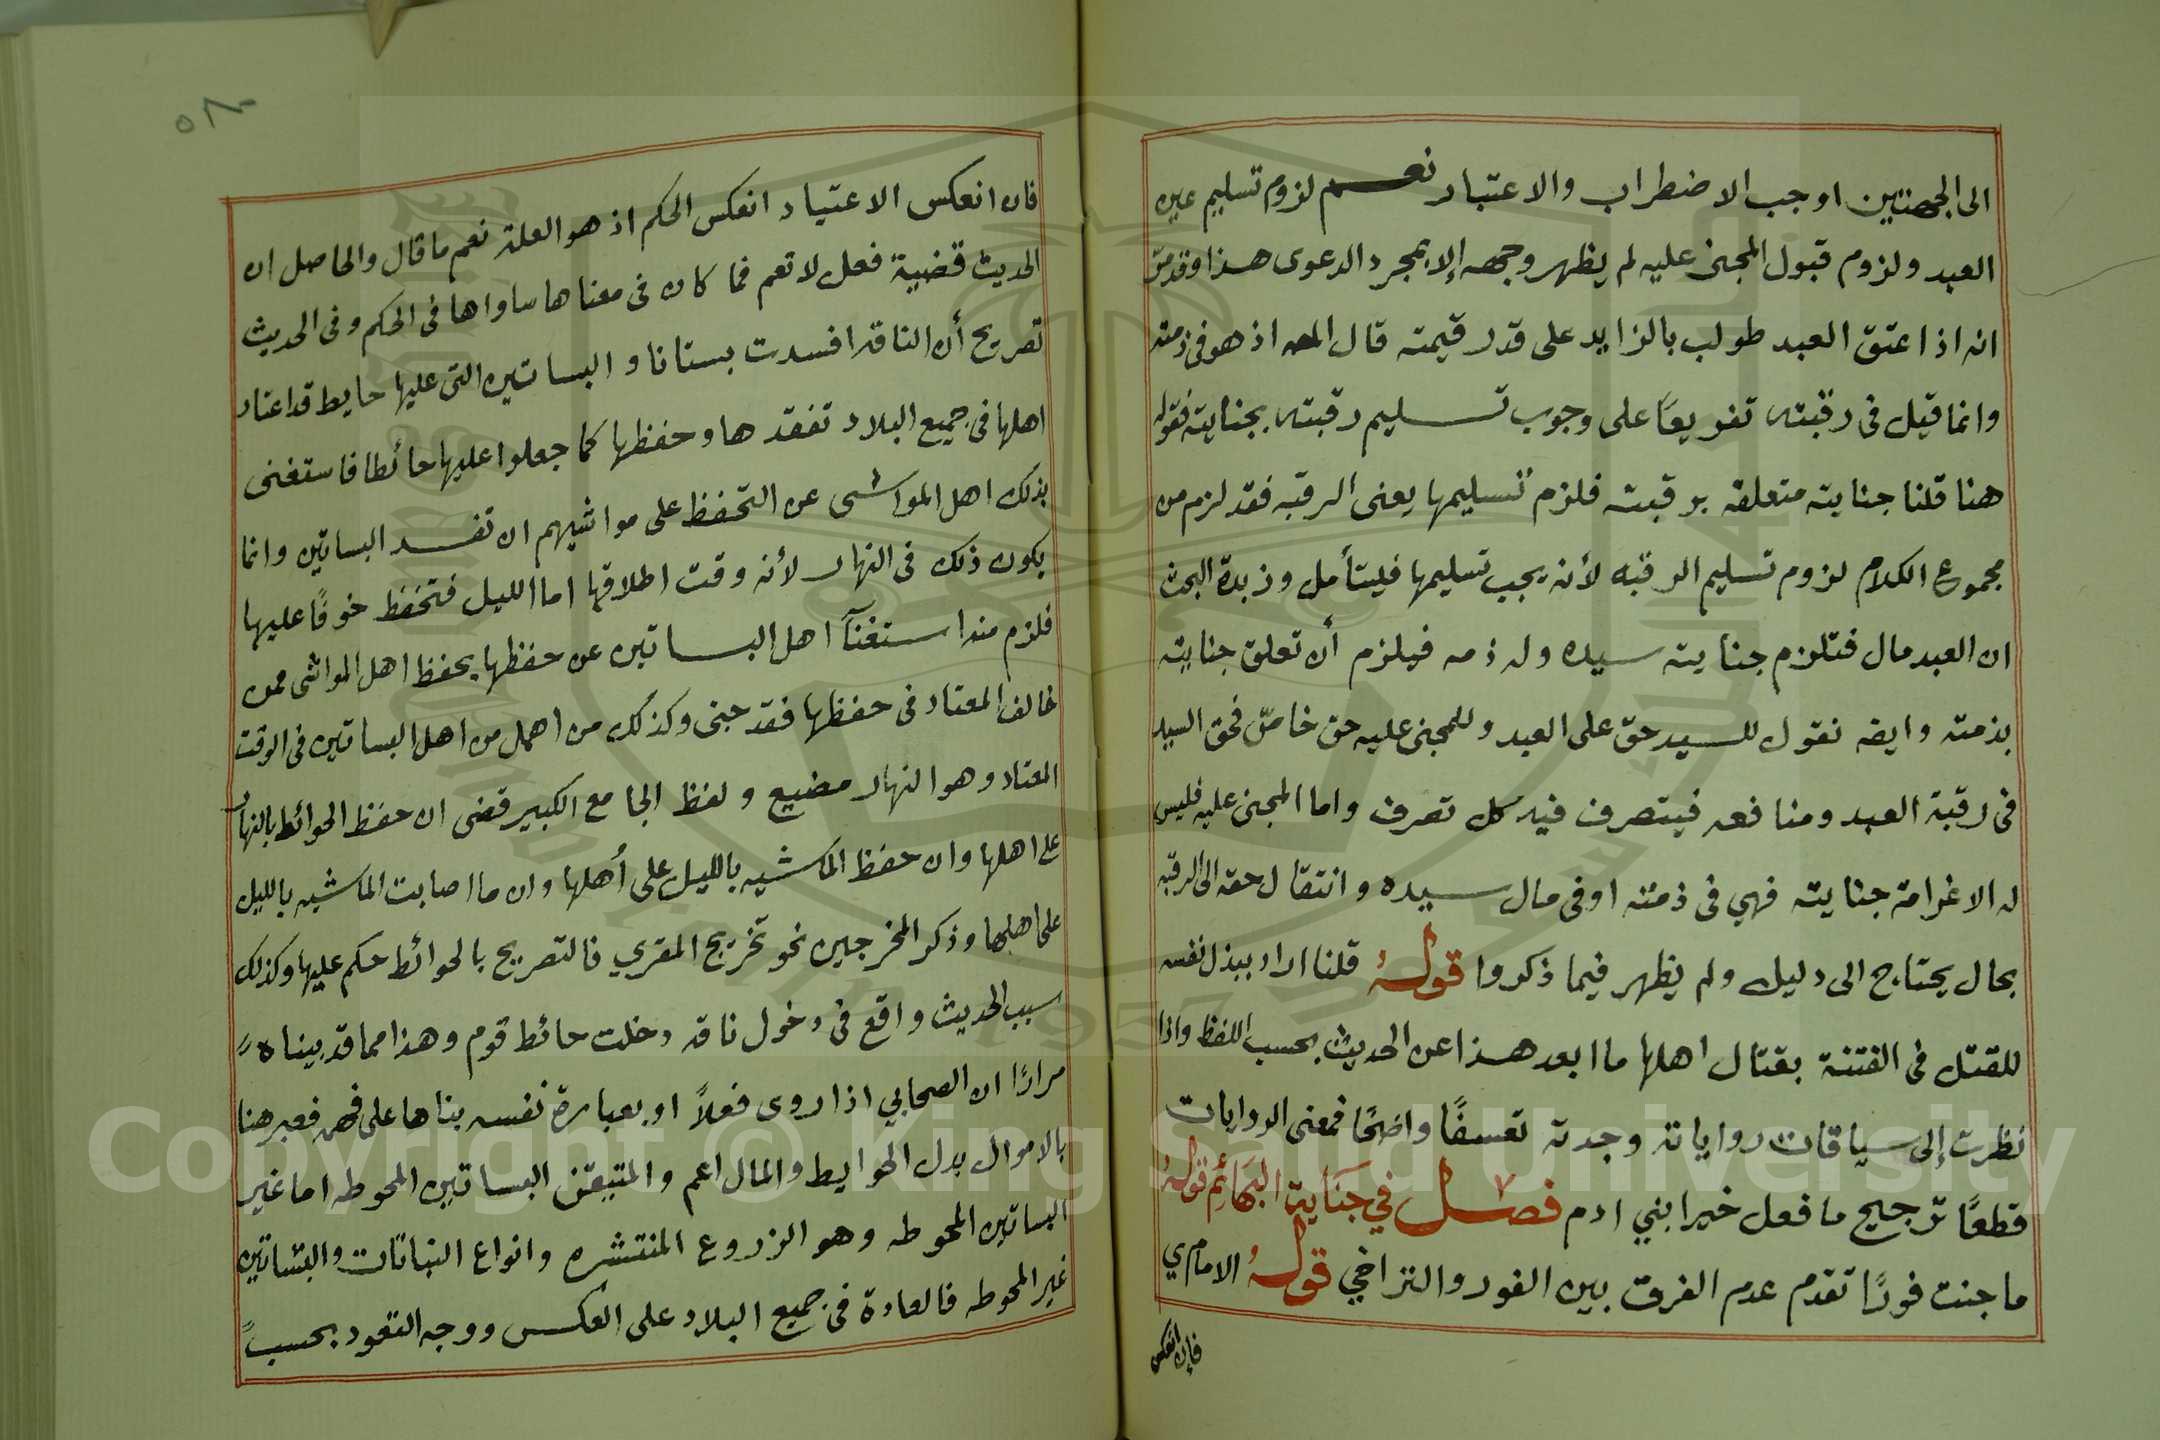 الى الجهتين اوجب الاضطراب والاعتبار نعم لزوم تسليم عين
العبد ولزوم قبول المجنى عليه لم يظهر وجهه إلا بمجرد الدعوى هذا وقد مرّ
انه اذا عتق العبد طولب بالزايد على قدر قيمته قال المص اذ هو فى ذمته
وانما قيل فى رقبته تفريعًا على وجوب تسليم رقبته بجنايته فقوله
هنا قلنا جنايته متعلقه برقبته فلزم تسليمها يعنى الرقبه فقد لزم من
مجموع الكلام لزوم تسليم الرقبه لأنه يجب تسليمها فليتأمل وزبدة البحث
ان العبد مال فتلزم جنايته سيده وله ذمه فيلزم أن تعلق جنايته
بذمته وايضه نقول للسيد حق على العبد وللمجنى عليه حق خاصّ فحق السيد
فى رقبة العبد ومنافعه فيتصرف فيه كل تصرف واما المجنى عليه فليس
له الا غرامة جنايته فهي فى ذمته او فى مال سيده وانتقال حقه الى الرقبه
بحال يحتاج الى دليل ولم يظهر فيما ذكروا قوله قلنا اراد ببذل نفسه
للقتل فى الفتنة بقتال اهلها ما ابعد هذا عن الحديث بحسب اللفظ واذا
نظرت إلى سياقات رواياته وجدته تعسفًا واضحًا فمعنى الروايات
قطعًا ترجيح ما فعل خير ابني ادم فصل في جناية البهائم قوله
ما جنت فورًا تقدم عدم الفرق بين الفور والتراخي قوله الامام ي
فإن انعكس
٥٨٠
فان انعكس الاعتياد انعكس الحكم اذ هو العلة نعم ما قال والحاصل ان
الحديث قضية فعل لا تعم فما كان فى معناها ساواها فى الحكم وفى الحديث
تصريح أن الناقه افسدت بستانا والبساتين التى عليها حايط قد اعتاد
اهلها فى جميع البلاد تفقدها وحفظها كما جعلوا عليها حائطا فاستغنى
بذلك اهل المواشى عن التحفظ على مواشيهم ان تفسد البساتين وانما
يكون ذلك فى النهار لأنه وقت اطلاقها اما الليل فتحفظ خوفًا عليها
فلزم منه استغنآ اهل البساتين عن حفظها بحفظ اهل المواشى فمن
خالف المعتاد فى حفظها فقد جنى وكذلك من اهمل من اهل البساتين فى الوقت
المعتاد وهو النهار مضيع ولفظ الجامع الكبير قضى ان حفظ الحوائط بالنهار
على اهلها وان حفظ الماشيه بالليل على أهلها وان ما اصابت الماشيه بالليل
على اهلها وذكر المخرجين نحو تخريج المقري فالتصريح بالحوائط حكم عليها وكذلك
سبب الحديث واقع فى دخول ناقه دخلت حائط قوم وهذا مما قد بيناه
مرارًا ان الصحابي اذا روى فعلاً او بعبارة نفسه بناها على فهمه فعبر هنا
بالاموال بدل الحوايط والمال اعم والمتيقن البساتين المحوطه اما غير
البساتين المحوطه وهو الزروع المنتشره وانواع النباتات والبساتين
غير المحوطه فالعادة فى جميع البلاد على العكس ووجه التعود بحسب
Copyright © King Saud University